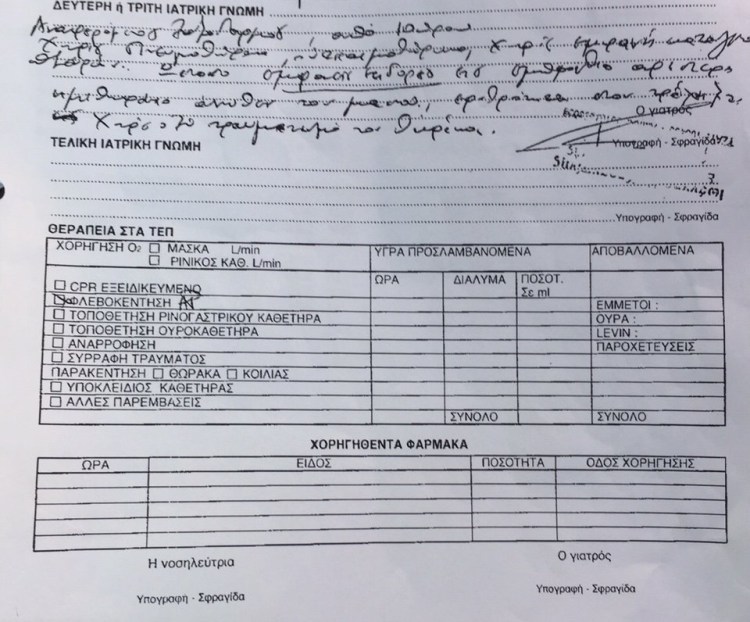 ΔΕΥΤΕΡΗ ή ΤΡΙΤΗ ΙΑΤΡΙΚΗ ΓΝΩΜΗ
Αναφερόμενος ξυλοδαρμός, από
Χωρίς πνευμοθώρακα, χωρίς εμφανή
στο αριστερό
ημιθωράκιο άνωθεν του μαστού,
Χωρίς τραυματισμό του θώρακα.
Ο γιατρός
Υπογραφή - Σφραγίδα
ΤΕΛΙΚΗ ΙΑΤΡΙΚΗ ΓΝΩΜΗ
Υπογραφή - Σφραγίδα
ΘΕΡΑΠΕΙΑ ΣΤΑ ΤΕΠ
ΧΟΡΗΓΗΣΗ Ο2 ΜΑΣΚΑ L/min
ΡΙΝΙΚΟΣ ΚΑΘ. L/min
ΥΓΡΑ ΠΡΟΣΛΑΜΒΑΝΟΜΕΝΑ
ΑΠΟΒΑΛΛΟΜΕΝΑ
ΩΡΑ ΔΙΑΛΥΜΑ ΠΟΣΟΤ.
Σε ml
CPR ΕΞΕΙΔΙΚΕΥΜΕΝΟ
ΦΛΕΒΟΚΕΝΤΗΣΗ
ΕΜΜΕΤΟΙ :
ΤΟΠΟΘΕΤΗΣΗ ΡΙΝΟΓΑΣΤΡΙΚΟΥ ΚΑΘΕΤΗΡΑ
ΟΥΡΑ :
ΤΟΠΟΘΕΤΗΣΗ ΟΥΡΟΚΑΘΕΤΗΡΑ
LEVIN :
ΑΝΑΡΡΟΦΗΣΗ
ΠΑΡΟΧΕΤΕΥΣΕΙΣ
ΣΥΡΡΑΦΗ ΤΡΑΥΜΑΤΟΣ
ΠΑΡΑΚΕΝΤΗΣΗ ΘΩΡΑΚΑ ΚΟΙΛΙΑΣ
ΥΠΟΚΛΕΙΔΙΟΣ ΚΑΘΕΤΗΡΑΣ
ΑΛΛΕΣ ΠΑΡΕΜΒΑΣΕΙΣ
ΣΥΝΟΛΟ ΣΥΝΟΛΟ
ΧΟΡΗΓΗΘΕΝΤΑ ΦΑΡΜΑΚΑ
ΩΡΑ ΕΙΔΟΣ ΠΟΣΟΤΗΤΑ ΟΔΟΣ ΧΟΡΗΓΗΣΗΣ
Η νοσηλεύτρια Ο γιατρός
Υπογραφή - Σφραγίδα Υπογραφή - Σφραγίδα